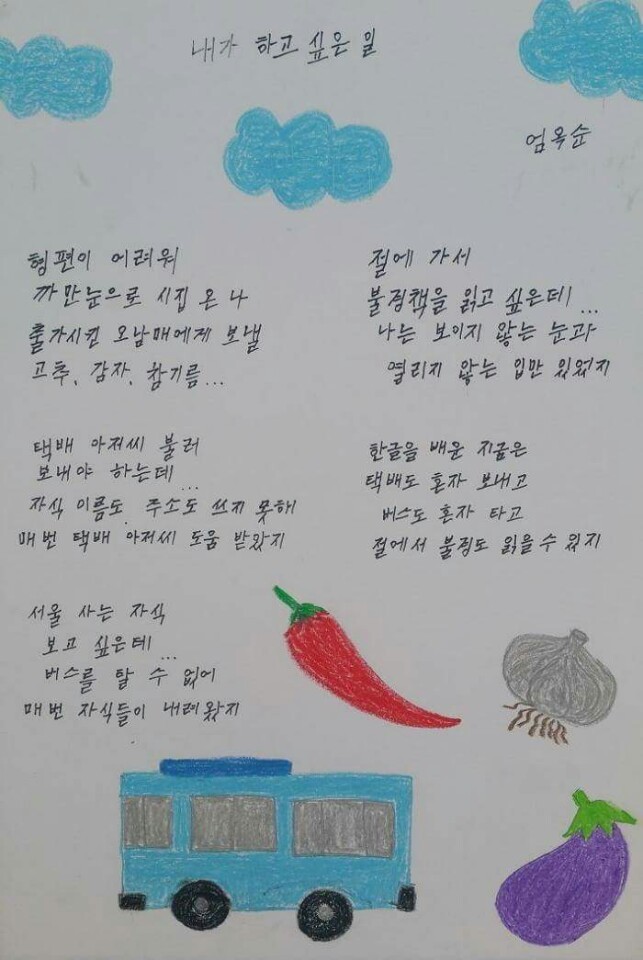 내가 하고 싶은 일
엄옥순
형편이 어려워
까만눈으로 시집 온 나
출가시킨 오남매에게 보낼
고추, 감자, 참기름...
택배 아저씨 불러
보내야 하는데...
자식 이름도 주소도 쓰지 못해
매번 택배 아저씨 도움 받았지
서울 사는 자식
보고 싶은데...
버스를 탈 수 없어
매번 자식들이 내려왔지
절에 가서
불경책을 읽고 싶은데...
나는 보이지 않는 눈과
열리지 않는 입만 있었지
한글을 배운 지금은
택배도 혼자 보내고
버스도 혼자 타고
절에서 불경도 읽을 수 있지